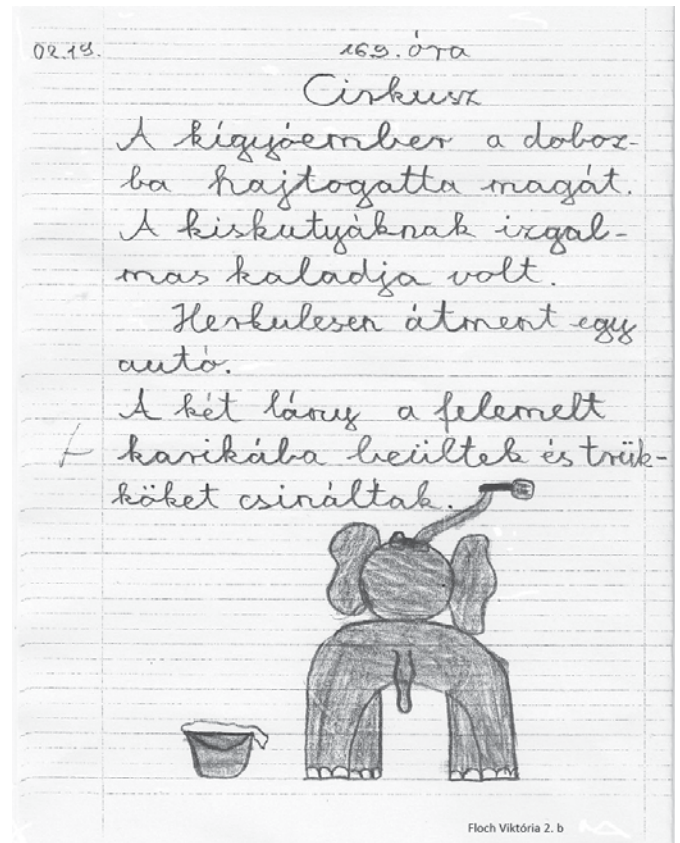 02.19. 169. óra
Cirkusz
A kígyóember a doboz-
ba hajtogatta magát.
A kiskutyáknak izgal-
mas kaladja volt.
Herkulesen átment egy
autó.
A két lány a felemelt
karikába beültek és trük-
köket csináltak.
Floch Viktória 2. b